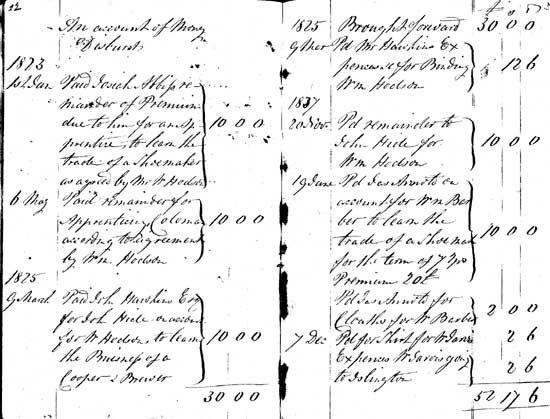 12
An account of Money
Disburst
1823
1st Jan Paid Josiah Abbiss re-
mainder of Premium
due to him for an Ap-
prentice, to learn the
trade of a Shoemaker
as agreed by Mr W Hodson
10 0 0
6 May Paid remainder for
Apprenticing Coleman
according to Agreement
by Wm Hodson
10 0 0
1825
9 March Paid Joh Hawkins Esq
for Joh Hide on account
for W Hodson, to learn
the Buesness of a
Cooper & Brewer
10 0 0
30 0 0
£ s d
1825 Brought forward 30 0 0
9ther Pd Mr Hawkins Ex
pences &c for Binding
Wm Hodson
12 6
1837
20 Nov Pd remainder to
John Hide for
Wm Hodson
10 0 0
19 June Pd Jas Arnott on
account for Wm Bar
ber to learn the
trade of a Shoemak
for the term of 7 yrs
Premium 20£
10 0 0
Pd Jas Arnott for
Cloaths for W Barber
2 0 0
7 Dec Pd for Shirt for W Jarvis 2 6
Expences W Jarvis going
to Islington
2 6
52 17 6